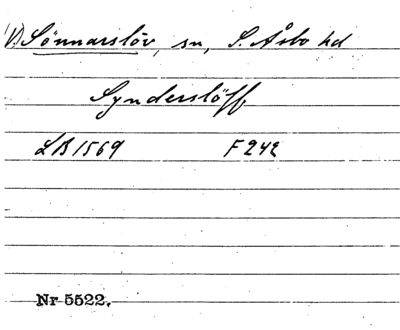 (V.) Sönnarslöv, sn, S. Åsbo hd
Synderslöff
LB 1569 F 242
Nr 5522.